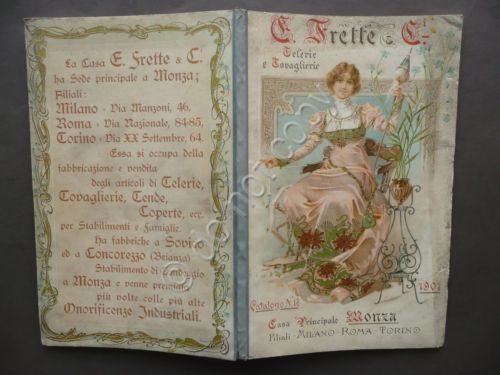 La Casa E. Frette & C.
ha Sede principale a Monza;
Filiali:
Milano - Via Manzoni, 46,
Roma - Via Nazionale, 84-85,
Torino - Via XX Settembre, 64.
Essa si occupa della
fabbricazione e vendita
degli articoli di Telerie,
Tovaglierie, Tende,
Coperte, ecc.
per Stabilimenti e Famiglie.
Ha fabbriche a Sovico
ed a Concorezzo (Brianza)
Stabilimento di Candeggio
a Monza e venne premiata
più volte colle più alte
Onorificenze Industriali.
E. Frette & C.
Telerie
e Tovaglierie
1901
Catalogo N.
Casa Principale Monza
Filiali - MILANO - ROMA - TORINO